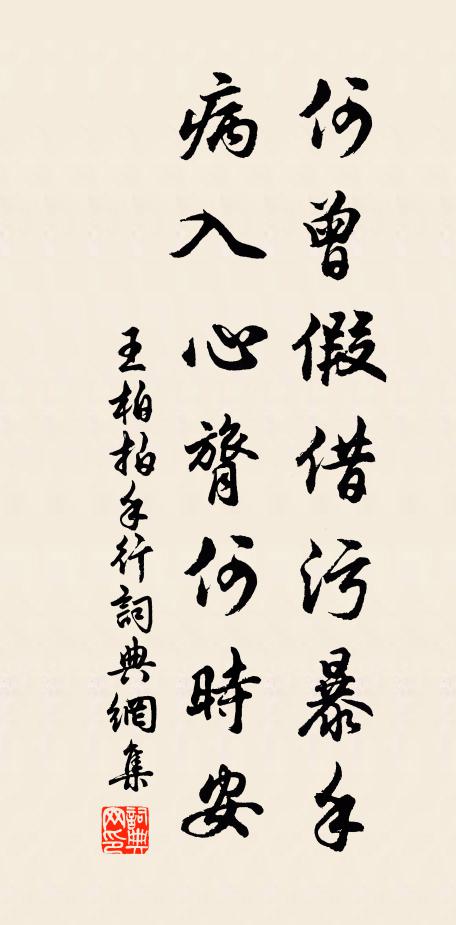 何曾假借污暴手
病入心膂何時安
王柏拍手行詞典網集
詞典网印